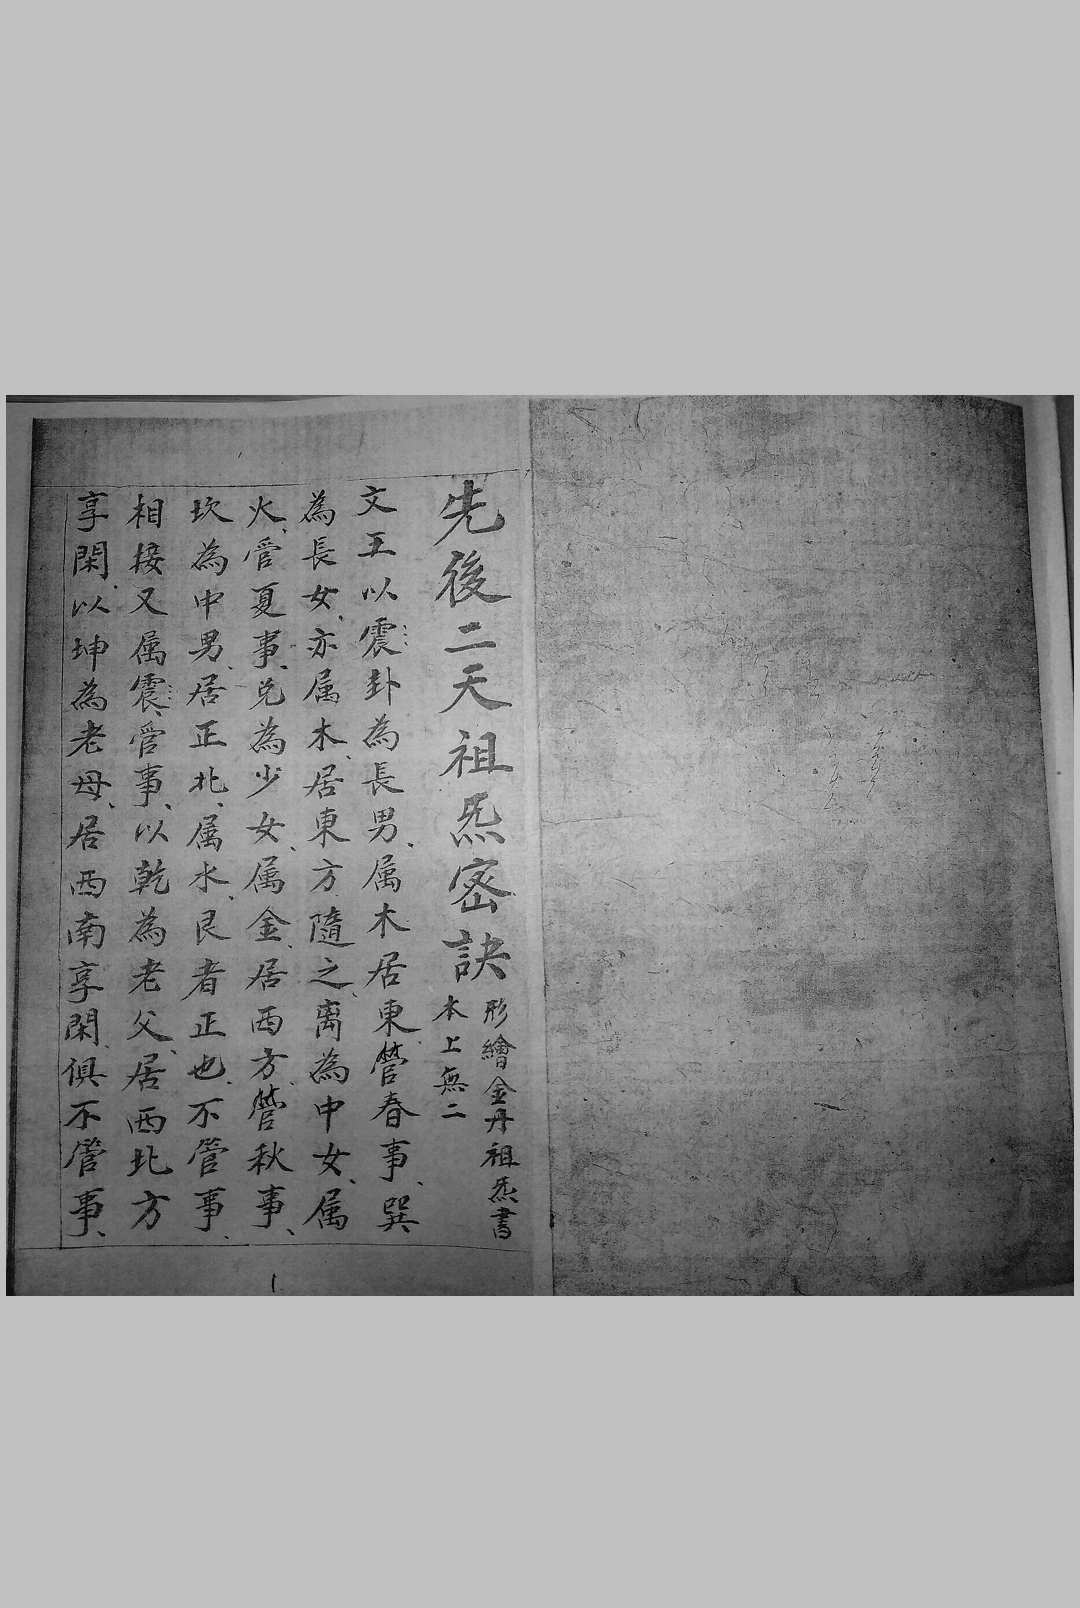 先後二天祖炁密訣
形繪金丹祖炁書
本上無二
文王以震卦為長男、属木居東、管春事、巽
為長女、亦属木、居東方隨之、离為中女、属
火、管夏事、兌為少女、属金、居西方、管秋事、
坎為中男、居正北、属水、艮者正也、不管事、
相接又属震、管事、以乾為老父、居西北方
享閑、以坤為老母、居西南享閑、俱不管事、
1